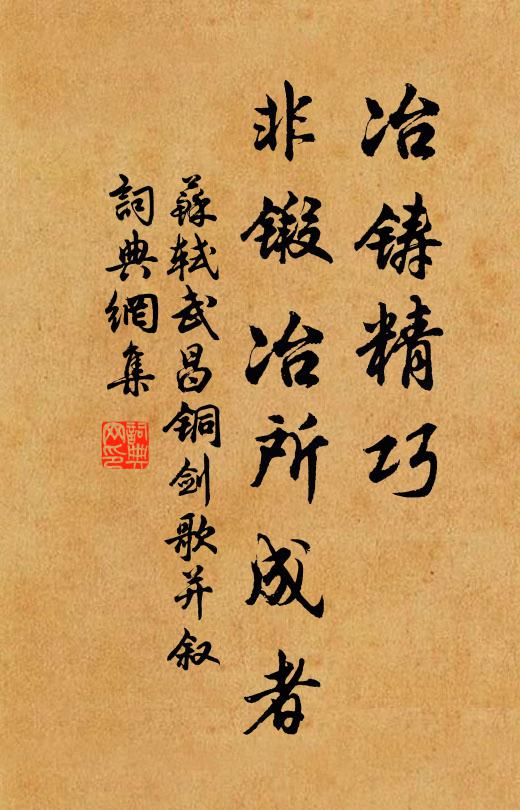 冶铸精巧
非锻冶所成者
蘇轼武昌铜剑歌并叙
詞典網集
詞典网印